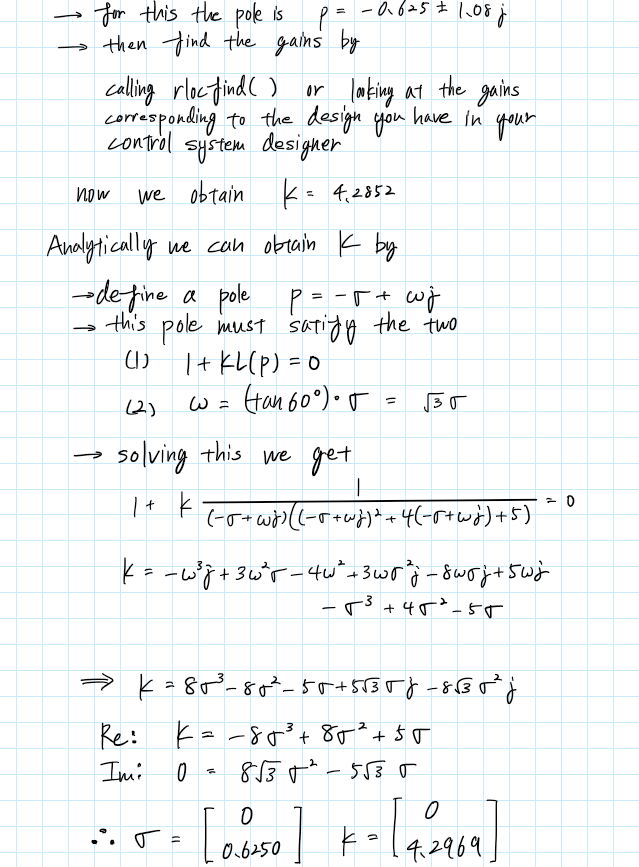 → for this the pole is p = -0.625 ± 1.08 j
→ then find the gains by
calling rlocfind( ) or looking at the gains
corresponding to the design you have in your
control system designer
now we obtain K = 4.2852
Analytically we can obtain K by
→ define a pole p = -σ + ωj
→ this pole must satisfy the two
(1) 1 + KL(p) = 0
(2) ω = (tan 60°)·σ = √3 σ
→ solving this we get
1 + K 1/((-σ+ωj)((-σ+ωj)²+4(-σ+ωj)+5)) = 0
K = -ω³j + 3ω²σ - 4ω² + 3ωσ²j - 8ωσj + 5ωj
- σ³ + 4σ² - 5σ
⇒ K = 8σ³ - 8σ² - 5σ + 5√3 σj - 8√3 σ²j
Re: K = -8σ³ + 8σ² + 5σ
Im: 0 = 8√3 σ² - 5√3 σ
∴ σ = [0 0.6250] K = [0 4.2969]